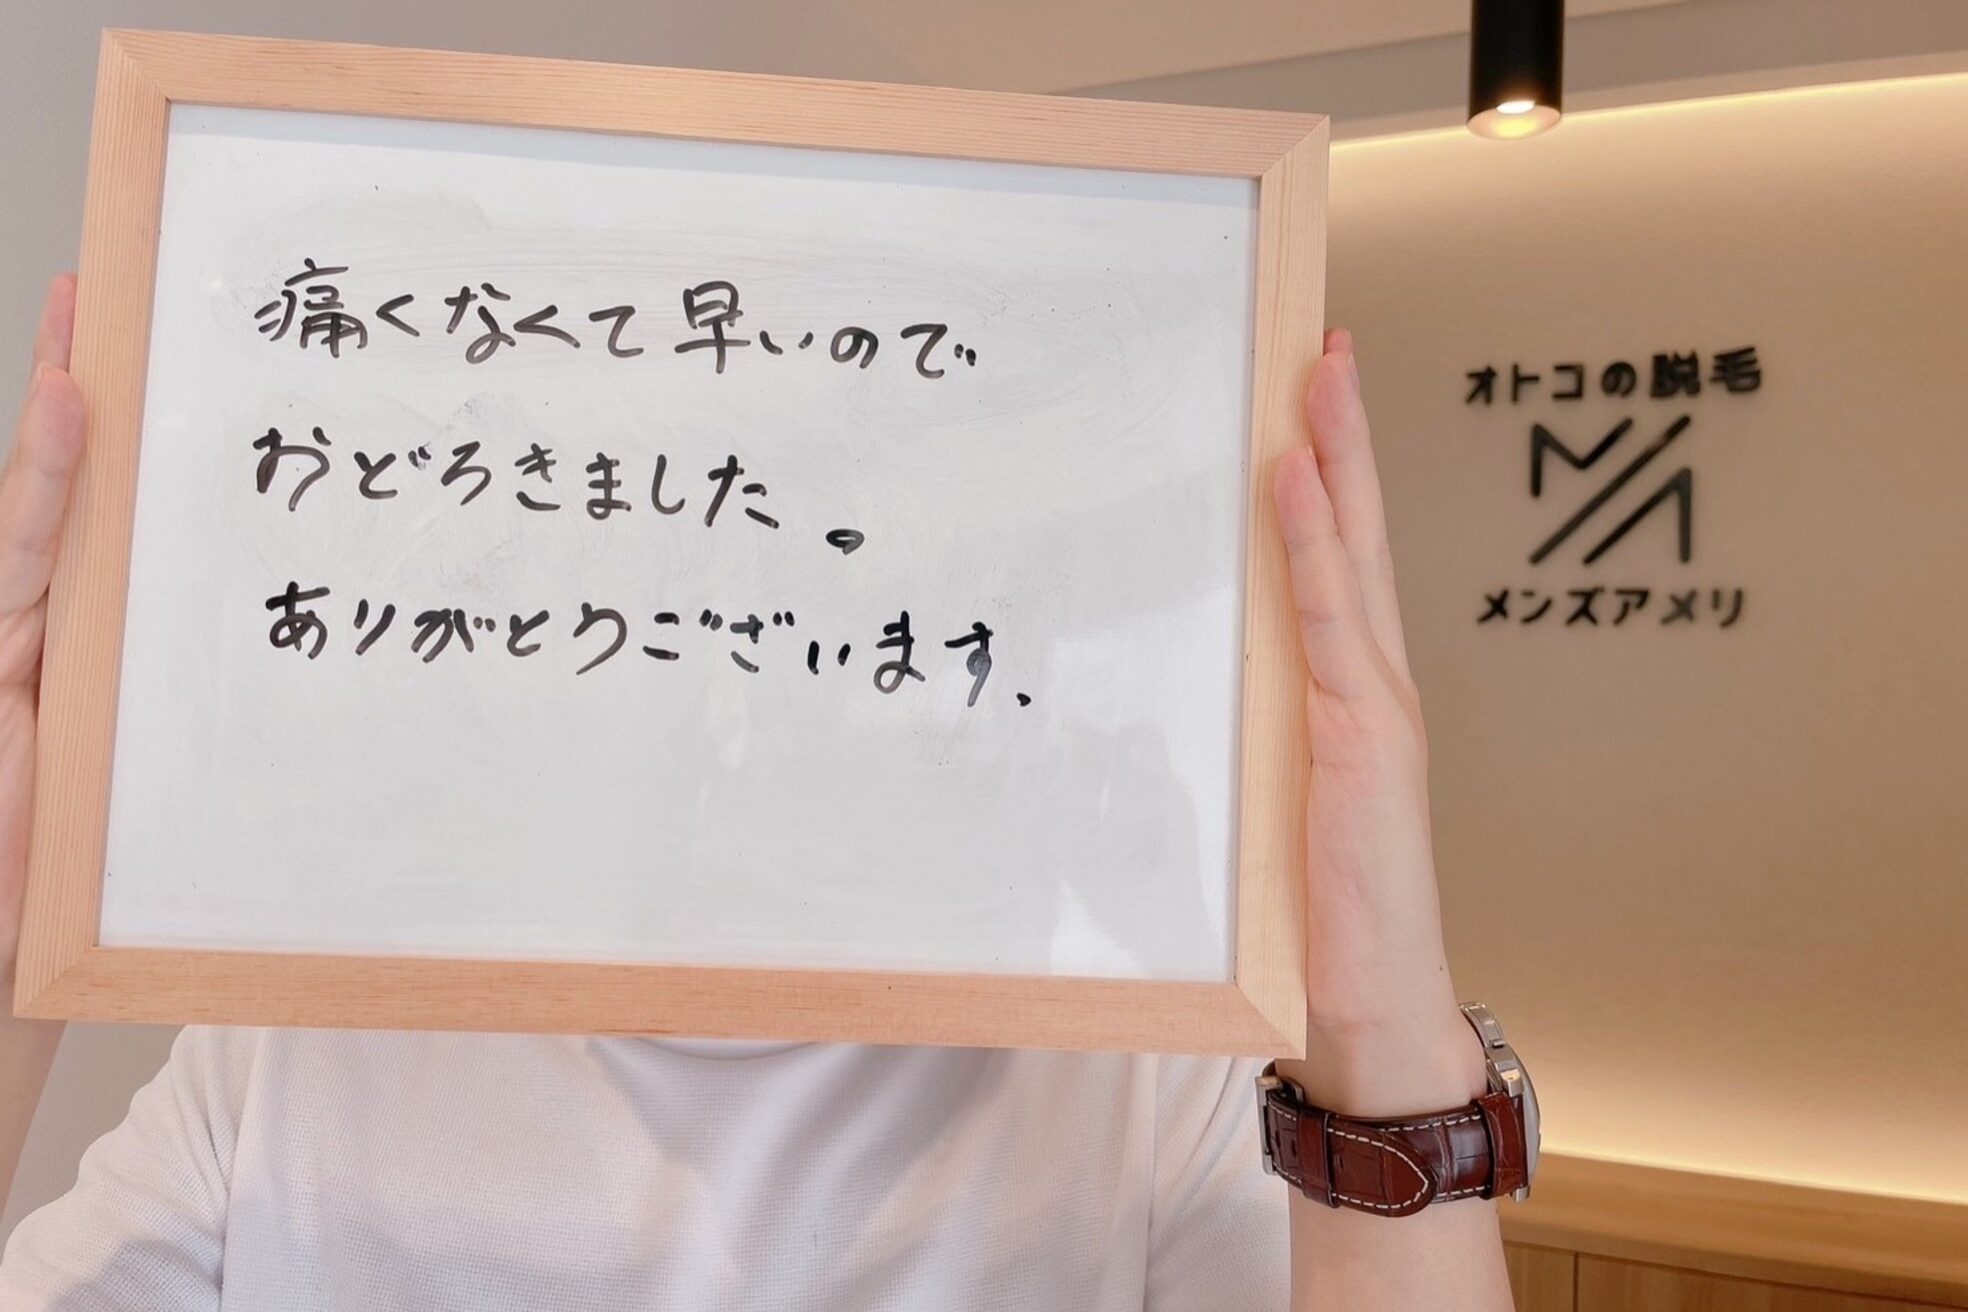 痛くなくて早いので
おどろきました。
ありがとうございます.
オトコの脱毛
メンズアメリ